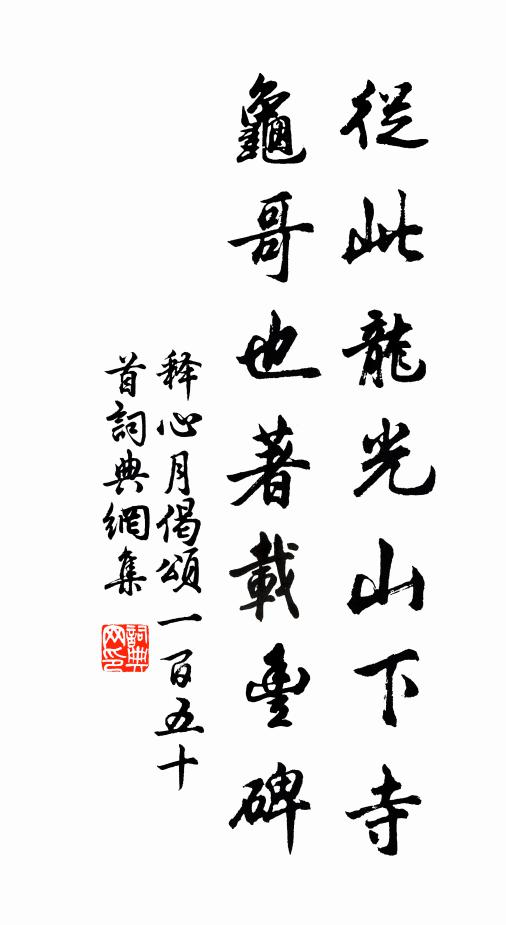 從此龍光山下寺
龜哥也著載豊碑
释心月偈頌一百五十
首詞典網集
詞典网印